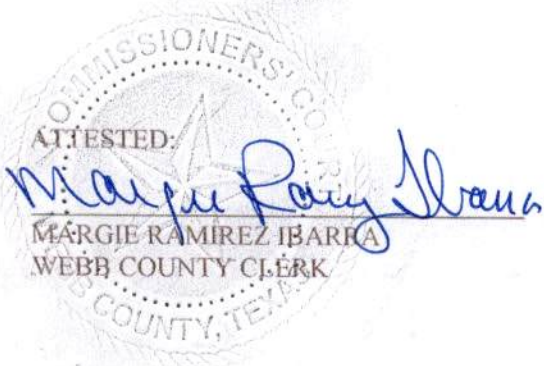 COMMISSIONERS' COURT
ATTESTED:
Margie Ramirez Ibarra
MARGIE RAMIREZ IBARRA
WEBB COUNTY CLERK
WEBB COUNTY, TEXAS